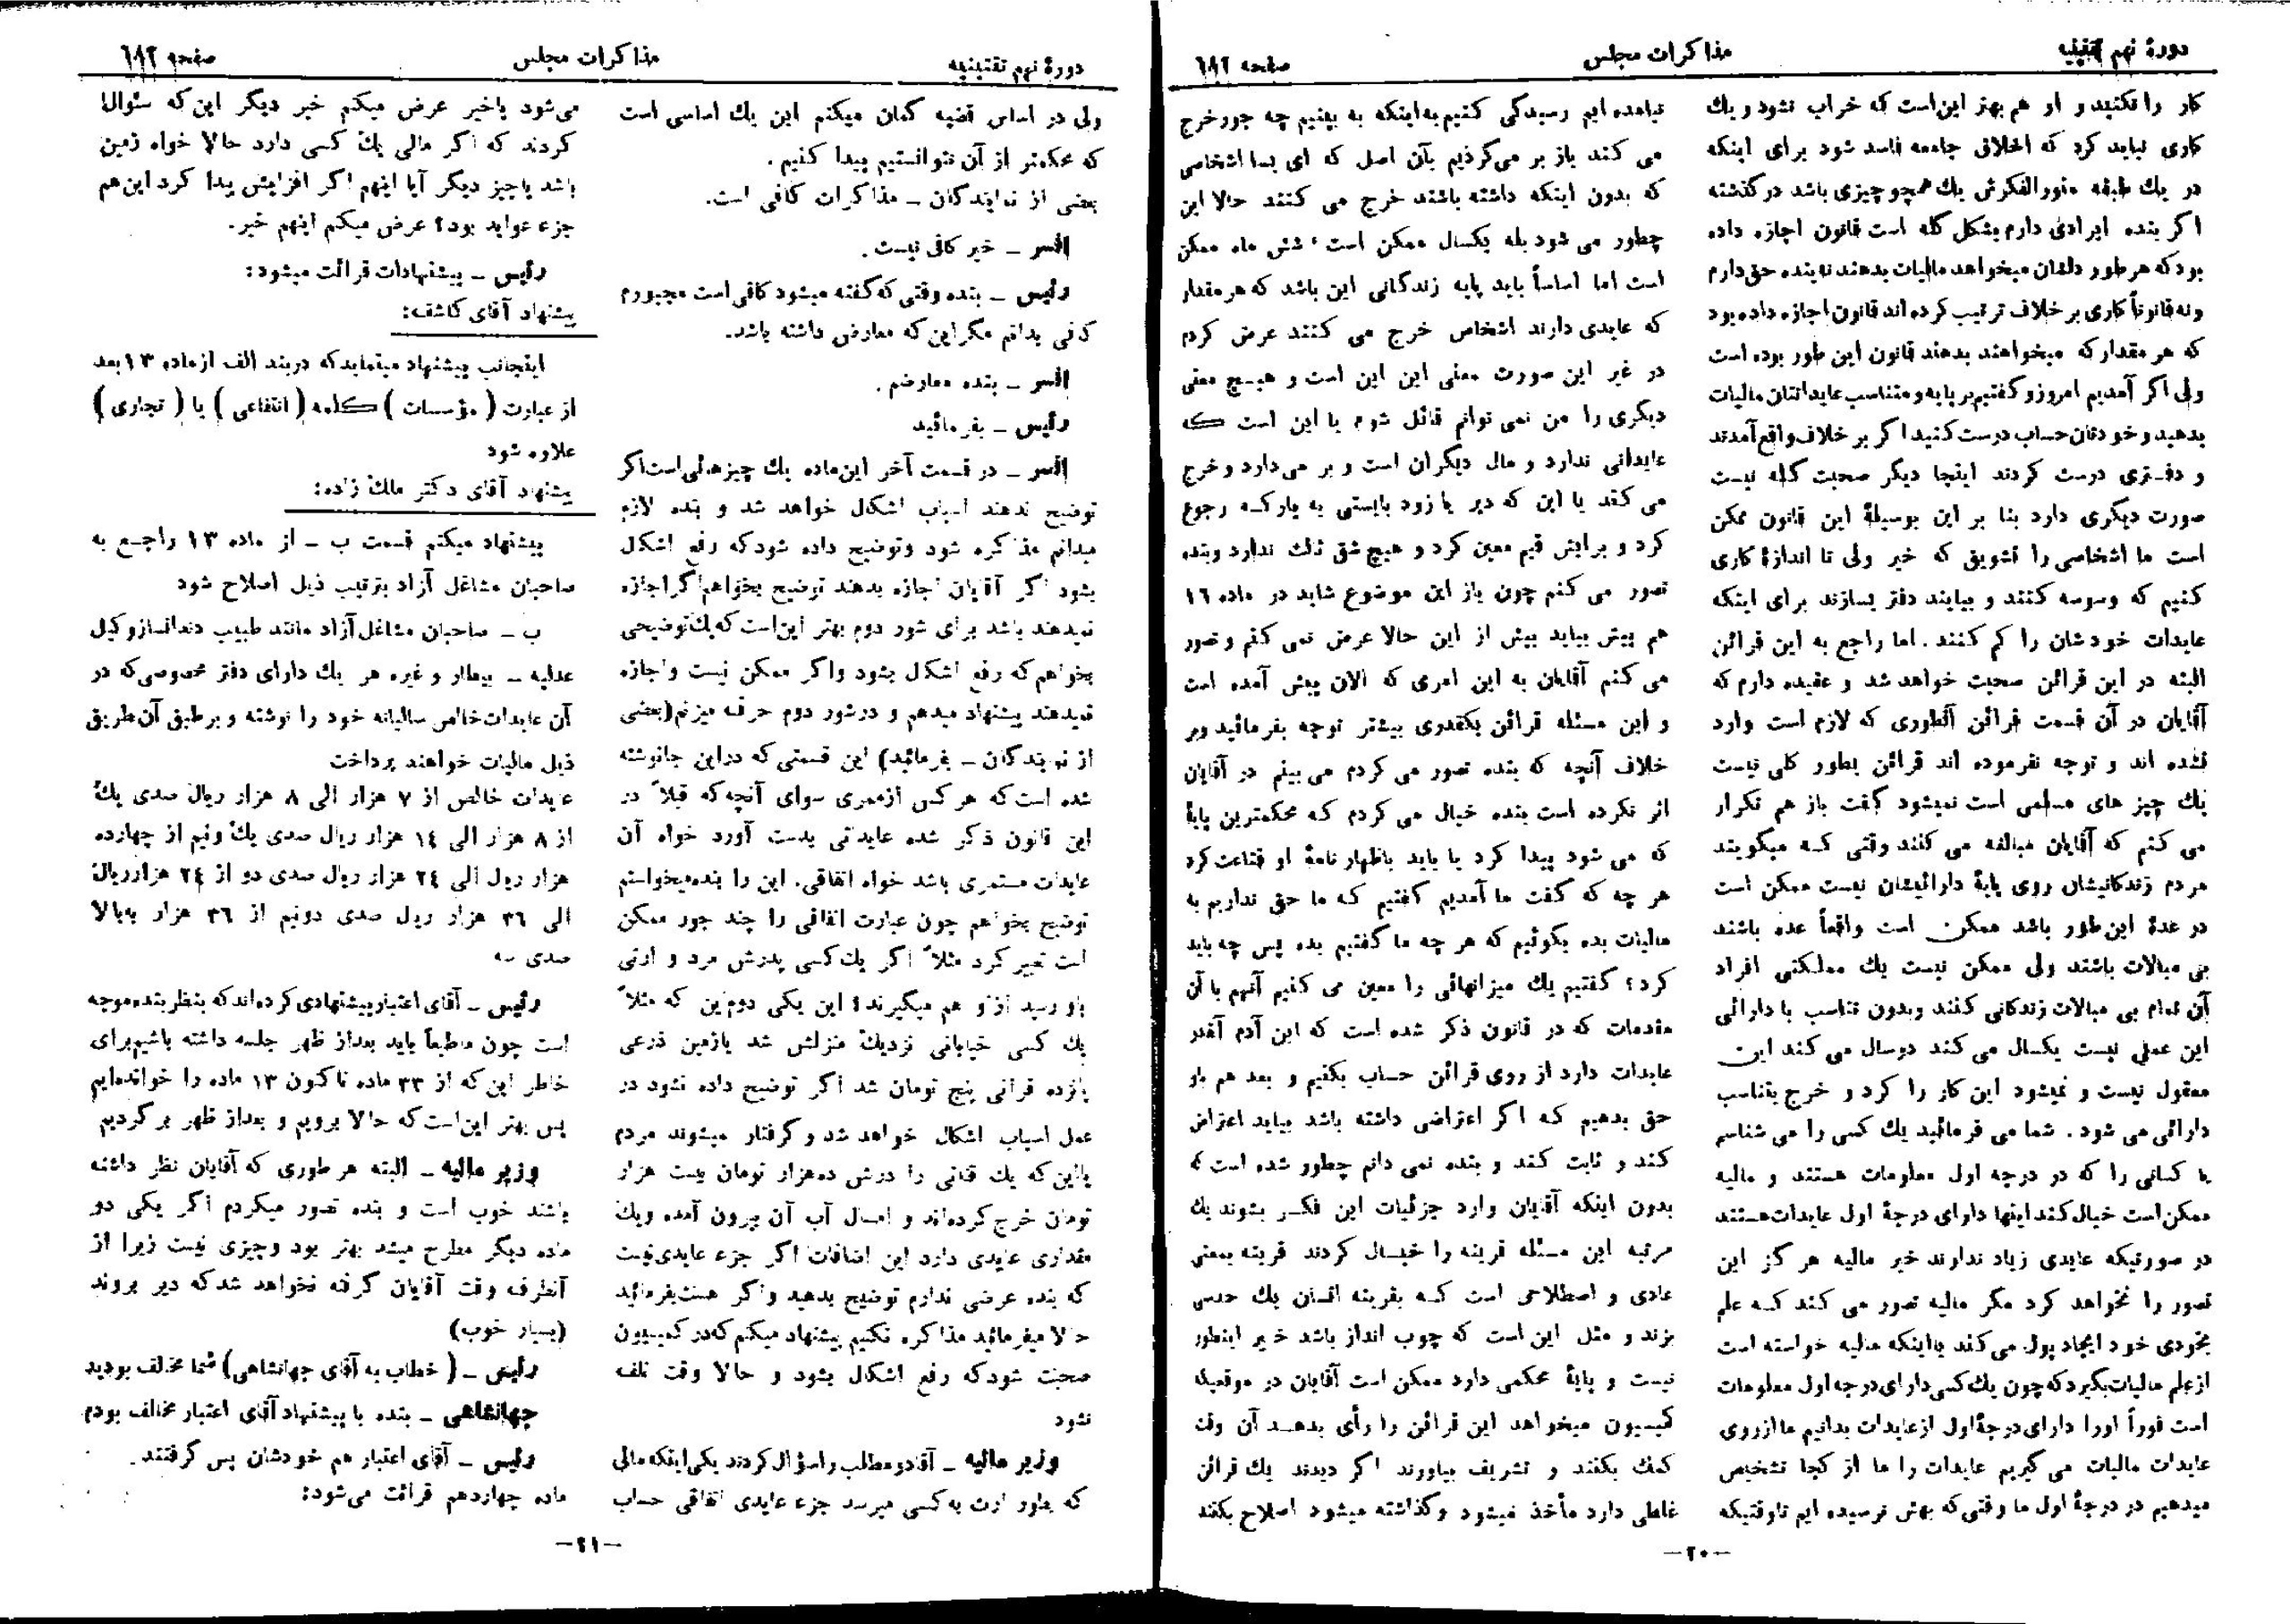 دورهٔ نهم تقنینیه
مذاکرات مجلس
صفحه ٦٩٢
کار را نکنید و او هم بهتر این‌است که خراب نشود و یك
کاری نباید کرد که اخلاق جامعه فاسد شود برای اینکه
در یك طبقه منورالفکرش یك همچو چیزی باشد در گذشته
اگر بنده ایرادی دارم بشکل کله است قانون اجازه داده
بود که هر طور دلتان میخواهد مالیات بدهند نه بنده حق دارم
و نه قانوناً کاری بر خلاف ترتیب کرده اند قانون اجازه داده بود
که هر مقدار که میخواهند بدهند قانون این طور بوده است
ولی اگر آمدیم امروز و گفتیم بر پایه و متناسب عایداتتان مالیات
بدهید و خودتان حساب درست کنید اگر بر خلاف واقع آمدند
و دفتری درست کردند اینجا دیگر صحبت کله نیست
صورت دیگری دارد بنا بر این بوسیلهٔ این قانون ممکن
است ما اشخاصی را تشویق که خیر ولی تا اندازهٔ کاری
کنیم که وسوسه کنند و بیایند دفتر بسازند برای اینکه
عایدات خودشان را کم کنند . اما راجع به این قرائن
البته در این قرائن صحبت خواهد شد و عقیده دارم که
آقایان در آن قسمت قرائن آنطوری که لازم است وارد
نشده اند و توجه نفرموده اند قرائن بطور کلی نیست
یك چیز های مسلمی است نمیشود گفت باز هم تکرار
می کنم که آقایان مبالغه می کنند وقتی که میگویند
مردم زندگانیشان روی پایهٔ دارائیشان نیست ممکن است
در عدهٔ این طور باشد ممکن است واقعاً عده باشند
بی مبالات باشند ولی ممکن نیست یك مملکتی افراد
آن تمام بی مبالات زندگانی کنند و بدون تناسب با دارائی
این عملی نیست یکسال می کند دو سال می کند این
معقول نیست و نمیشود این کار را کرد و خرج بتناسب
دارائی می شود . شما می فرمائید یك کسی را می شناسم
یا کسانی را که در درجه اول معلومات هستند و مالیه
ممکن است خیال کند اینها دارای درجهٔ اول عایدات هستند
در صورتیکه عایدی زیاد ندارند خیر مالیه هر گز این
تصور را نخواهد کرد مگر مالیه تصور می کند که علم
بخودی خود ایجاد پول می کند یا اینکه مالیه خواسته است
از علم مالیات بگیرد که چون یك کسی دارای درجه اول معلومات
است فوراً اورا دارای درجهٔ اول از عایدات بدانیم ما از روی
عایدات مالیات می گیریم عایدات را ما از کجا تشخاص
میدهیم در درجهٔ اول ما وقتی که بهش نرسیده ایم تا وقتیکه
نیامده ایم رسیدگی کنیم به اینکه به بینیم چه جور خرج
می کند باز بر می گردیم بآن اصل که ای بسا اشخاصی
که بدون اینکه داشته باشند خرج می کنند حالا این
چطور می شود بله یکسال ممکن است ، شش ماه ممکن
است اما اساساً باید پایه زندگانی این باشد که هر مقدار
که عایدی دارند اشخاص خرج می کنند عرض کردم
در غیر این صورت معنی این این است و هیچ معنی
دیگری را من نمی توانم قائل شوم یا این است که
عایداتی ندارد و مال دیگران است و بر می دارد و خرج
می کند یا این که دیر یا زود بایستی به پارکه رجوع
کرد و برایش قیم معین کرد و هیچ شق ثالث ندارد و بنده
تصور می کنم چون باز این موضوع شاید در ماده ۱٦
هم پیش بیاید بیش از این حالا عرض نمی کنم و تصور
می کنم آقایان به این امری که الان پیش آمده است
و این مسئله قرائن یکقدری بیشتر توجه بفرمائید و بر
خلاف آنچه که بنده تصور می کردم می بینم در آقایان
اثر نکرده است بنده خیال می کردم که محکمترین پایهٔ
که می شود پیدا کرد یا باید باظهار نامهٔ او قناعت کرد
هر چه که گفت ما آمدیم گفتیم که ما حق نداریم به
مالیات بده بگوئیم که هر چه ما گفتیم بده پس چه باید
کرد ؟ گفتیم یك میزانهائی را معین می کنیم آنهم با آن
مقدمات که در قانون ذکر شده است که این آدم آنقدر
عایدات دارد از روی قرائن حساب بکنیم و بعد هم باو
حق بدهیم که اگر اعتراضی داشته باشد بیاید اعتراض
کند و ثابت کند و بنده نمی دانم چطور شده است که
بدون اینکه آقایان وارد جزئیات این فکر بشوند یك
مرتبه این مسئله قرینه را خیال کردند قرینه بمعنی
عادی و اصطلاحی است که بقرینه انسان یك حدسی
بزند و مثل این است که چوب انداز باشد خیر اینطور
نیست و پایهٔ محکمی دارد ممکن است آقایان در موقعیکه
کمیسیون میخواهد این قرائن را رأی بدهد آن وقت
کمك بکنند و تشریف بیاورند اگر دیدند یك قرائن
غلطی دارد مأخذ نمیشود و گذاشته میشود اصلاح بکنند
—۲۰—
دورهٔ نهم تقنینیه
مذاکرات مجلس
صفحه ٦٩٢
ولی در اساس قضیه گمان میکنم این یك اساسی است
که محکمتر از آن نتوانستیم پیدا کنیم .
بعضی از نمایندگان ــ مذاکرات کافی است.
افسر ــ خیر کافی نیست .
رئیس ــ بنده وقتی که گفته میشود کافی است مجبورم
کافی بدانم مگر این که معارض داشته باشد.
افسر ــ بنده معارضم .
رئیس ــ بفرمائید
افسر ــ در قسمت آخر این ماده یك چیزهائی است اگر
توضیح ندهند اسباب اشکال خواهد شد و بنده لازم
میدانم مذاکره شود و توضیح داده شود که رفع اشکال
بشود اگر آقایان اجازه بدهند توضیح بخواهم اگر اجازه
نمیدهند باشد برای شور دوم بهتر این‌است که یك توضیحی
بخواهم که رفع اشکال بشود و اگر ممکن نیست و اجازه
نمیدهند پیشنهاد میدهم و در شور دوم حرف میزنم (بعضی
از نمایندگان ــ بفرمائید) این قسمتی که در این جا نوشته
شده است که هر کس از ممری سوای آنچه که قبلاً در
این قانون ذکر شده عایداتی بدست آورد خواه آن
عایدات مستمری باشد خواه اتفاقی. این را بنده میخواستم
توضیح بخواهم چون عبارت اتفاقی را چند جور ممکن
است تعبیر کرد مثلاً اگر یك کسی پدرش مرد و ارثی
باو رسید از او هم میگیرند؟ این یکی دوم این که مثلاً
یك کسی خیابانی نزدیك منزلش شد یا زمین ذرعی
پانزده قرانی پنج تومان شد اگر توضیح داده نشود در
عمل اسباب اشکال خواهد شد و گرفتار میشوند مردم
یا این که یك قناتی را درش ده هزار تومان بیست هزار
تومان خرج کرده‌اند و امسال آب آن بیرون آمده و یك
مقداری عایدی دارد این اضافات اگر جزء عایدی نیست
که بنده عرضی ندارم توضیح بدهید و اگر هست بفرمائید
حالا میفرمائید مذاکره نکنیم پیشنهاد میکنم که در کمیسیون
صحبت شود که رفع اشکال بشود و حالا وقت تلف
نشود
وزیر مالیه ــ آقا دو مطلب را سؤال کردند یکی اینکه مالی
که بطور ارث به کسی میرسد جزء عایدی اتفاقی حساب
می‌شود یا خیر عرض میکنم خیر دیگر این که سئوال
کردند که اگر مالی یك کسی دارد حالا خواه زمین
باشد یا چیز دیگر آیا اینهم اگر افزایش پیدا کرد این هم
جزء عواید بود؟ عرض میکنم اینهم خیر.
رئیس ــ پیشنهادات قرائت میشود:
پیشنهاد آقای کاشف:
اینجانب پیشنهاد مینماید که در بند الف از ماده ۱۳ بعد
از عبارت (مؤسسات) کلمه (انتفاعی) یا (تجاری)
علاوه شود
پیشنهاد آقای دکتر ملك زاده:
پیشنهاد میکنم قسمت ب ــ از ماده ۱۳ راجع به
صاحبان مشاغل آزاد بترتیب ذیل اصلاح شود
ب ــ صاحبان مشاغل آزاد مانند طبیب دندانساز وکیل
عدلیه ــ بیطار و غیره هر یك دارای دفتر مخصوصی که در
آن عایدات خالص سالیانه خود را نوشته و بر طبق آن طریق
ذیل مالیات خواهند پرداخت
عایدات خالص از ۷ هزار الی ۸ هزار ریال صدی یك
از ۸ هزار الی ۱٤ هزار ریال صدی یك و نیم از چهارده
هزار ریال الی ۲٤ هزار ریال صدی دو از ۲٤ هزار ریال
الی ۳٦ هزار ریال صدی دو نیم از ۳٦ هزار ببالا
صدی سه
رئیس ــ آقای اعتبار پیشنهادی کرده‌اند که بنظر بنده موجه
است چون ما طبعاً باید بعد از ظهر جلسه داشته باشیم برای
خاطر این که از ۳۳ ماده تا کنون ۱۳ ماده را خوانده‌ایم
پس بهتر این‌است که حالا برویم و بعد از ظهر بر گردیم
وزیر مالیه ــ البته هر طوری که آقایان نظر داشته
باشند خوب است و بنده تصور میکردم اگر یکی دو
ماده دیگر مطرح میشد بهتر بود و چیزی نیست زیرا از
آنطرف وقت آقایان گرفته نخواهد شد که دیر بروند
(بسیار خوب)
رئیس ــ (خطاب به آقای جهانشاهی) شما مخالف بودید
جهانشاهی ــ بنده با پیشنهاد آقای اعتبار مخالف بودم
رئیس ــ آقای اعتبار هم خودشان پس گرفتند .
ماده چهاردهم قرائت می‌شود:
—۲۱—